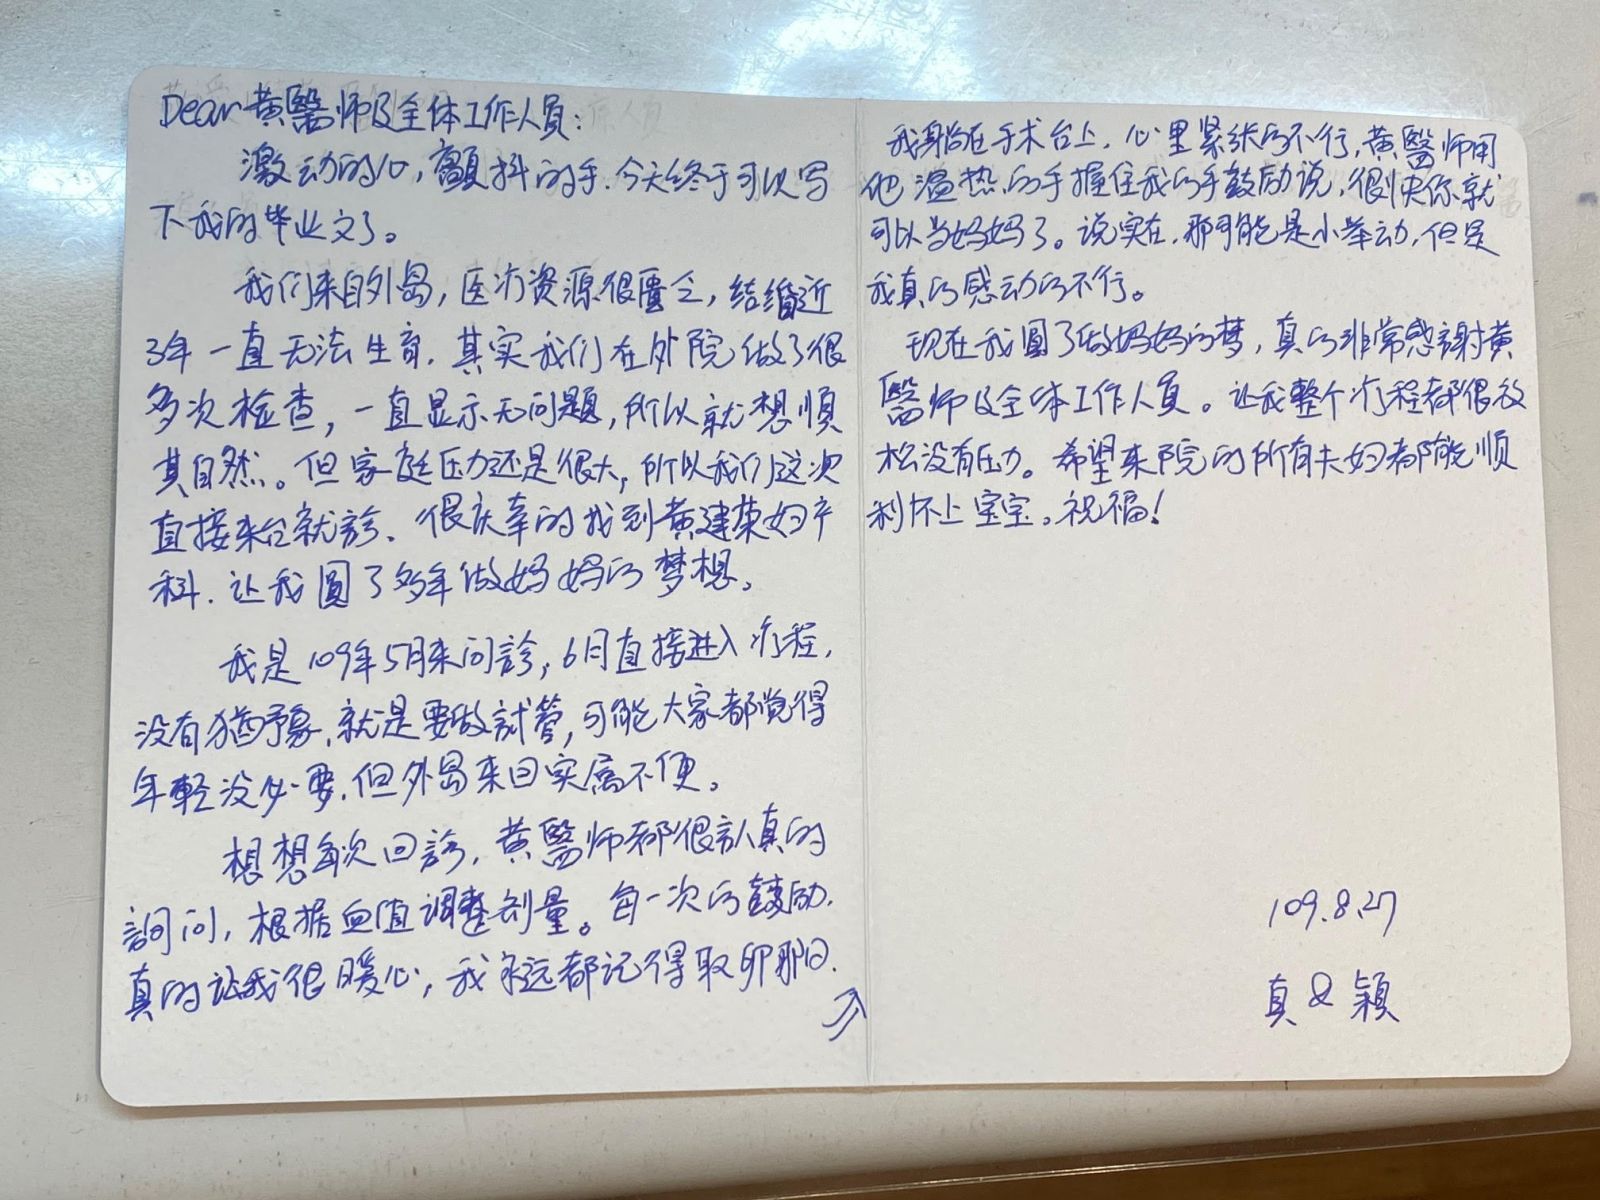 Dear 黄醫师及全体工作人員：
激动的心，顫抖的手.今天终于可以写
下我的毕业文了。
我们来自外島，医疗资源很匱乏，结婚近
3年一直无法生育.其实我们在外院做了很
多次检查，一直显示无问题，所以就想順
其自然。但家庭压力还是很大，所以我们这次
直接来台就診、很庆幸的找到黄建荣妇产
科.让我圓了多年做妈妈的梦想。
我是109年5月来问診，6月直接进入疗程，
没有猶予豪.就是要做試管，可能大家都觉得
年輕没必要.但外島来回实属不便。
想想每次回診，黄醫师都很认真的
詢问，根据血值调整剂量。每一次的鼓励.
真的让我很暖心，我永远都记得取卵那日.
我躺在手术台上，心里紧张的不行，黄醫师用
他温热的手握住我的手鼓励说，很快你就
可以当妈妈了。说实在.那可能是小举动，但是
我真的感动的不行。
现在我圓了做妈妈的梦，真的非常感謝黄
醫师及全体工作人員。让我整个疗程都很放
松没有压力。希望来院的所有夫妇都能顺
利怀上宝宝。祝福！
109.8.27
真 & 穎